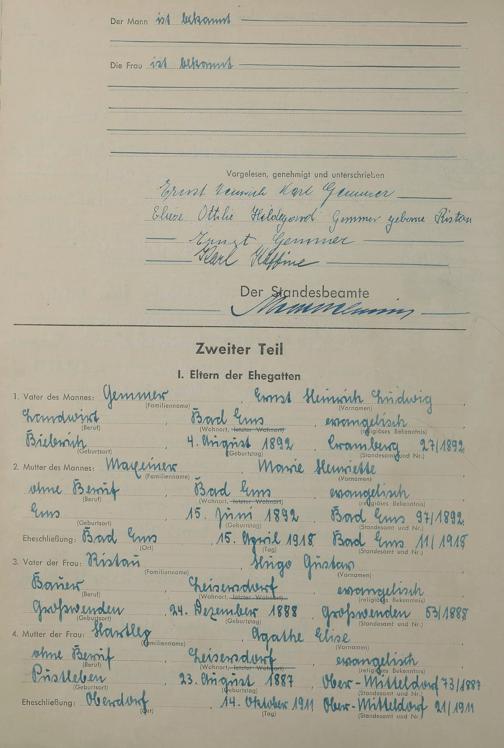 Der Mann ist bekannt
Die Frau ist bekannt
Vorgelesen, genehmigt und unterschrieben
Ernst Heinrich Karl Gemmer
Elise Ottilie Hildegard Gemmer geborne Ristau
Ernst Gemmer
Karl
Der Standesbeamte
Zweiter Teil
I. Eltern der Ehegatten
1. Vater des Mannes: Gemmer, Ernst Heinrich Ludwig
(Familienname) (Vornamen)
Landwirt, Bad Ems, evangelisch
(Beruf) (Wohnort, letzter Wohnort) (religiöses Bekenntnis)
Bieberich 4. August 1892 Cramberg 27/1892
(Geburtsort) (Geburtstag) (Standesamt und Nr.)
2. Mutter des Mannes: Marie Henriette
(Familienname) (Vornamen)
ohne Beruf, Bad Ems, evangelisch
(Beruf) (Wohnort, letzter Wohnort) (religiöses Bekenntnis)
Ems 15. Juni 1892 Bad Ems 97/1892
(Geburtsort) (Geburtstag) (Standesamt und Nr.)
Eheschließung: Bad Ems, 15. April 1918 Bad Ems 11/1918
(Ort) (Tag) (Standesamt und Nr.)
3. Vater der Frau: Ristau, Hugo Gustav
(Familienname) (Vornamen)
Bauer, Zeisersdorf, evangelisch
(Beruf) (Wohnort, letzter Wohnort) (religiöses Bekenntnis)
Großwenden, 24. Dezember 1888 Großwenden 53/1888
(Geburtsort) (Geburtstag) (Standesamt und Nr.)
4. Mutter der Frau: Agathe Elise
(Familienname) (Vornamen)
ohne Beruf, Zeisersdorf, evangelisch
(Beruf) (Wohnort, letzter Wohnort) (religiöses Bekenntnis)
Pustleben 23. August 1887 Ober-Mitteldorf 73/1887
(Geburtsort) (Geburtstag) (Standesamt und Nr.)
Eheschließung: Oberdorf, 14. Oktober 1911 Ober-Mitteldorf 21/1911
(Ort) (Tag) (Standesamt und Nr.)